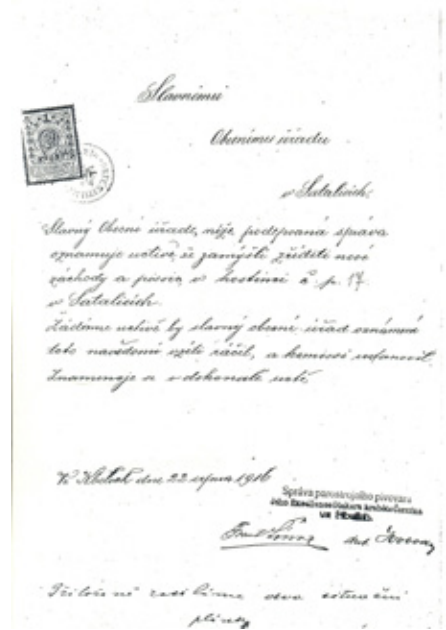 Slavnému
Obecnímu úřadu
v Satalicích.
Slavný Obecní úřade, níže podepsaná správa
oznamuje uctivě, že zamýšlí zříditi nové
záchody a pisoir v hostinci č. p. 17
v Satalicích.
Žádáme uctivě by slavný obecní úřad
toto vzíti ráčil, a komisi ustanovil.
Znamenaje se v dokonalé úctě
dne 22 srpna 1916
Správa parostrojního pivovaru
Přiložené zasíláme dva situační
plánky